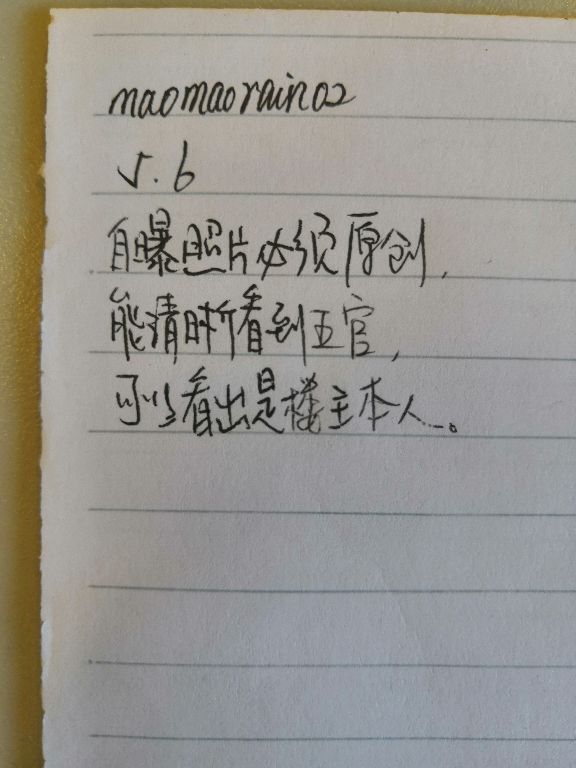 maomaorain02
5.6
自曝照片必须原创,
能清晰看到五官,
可以看出是楼主本人。